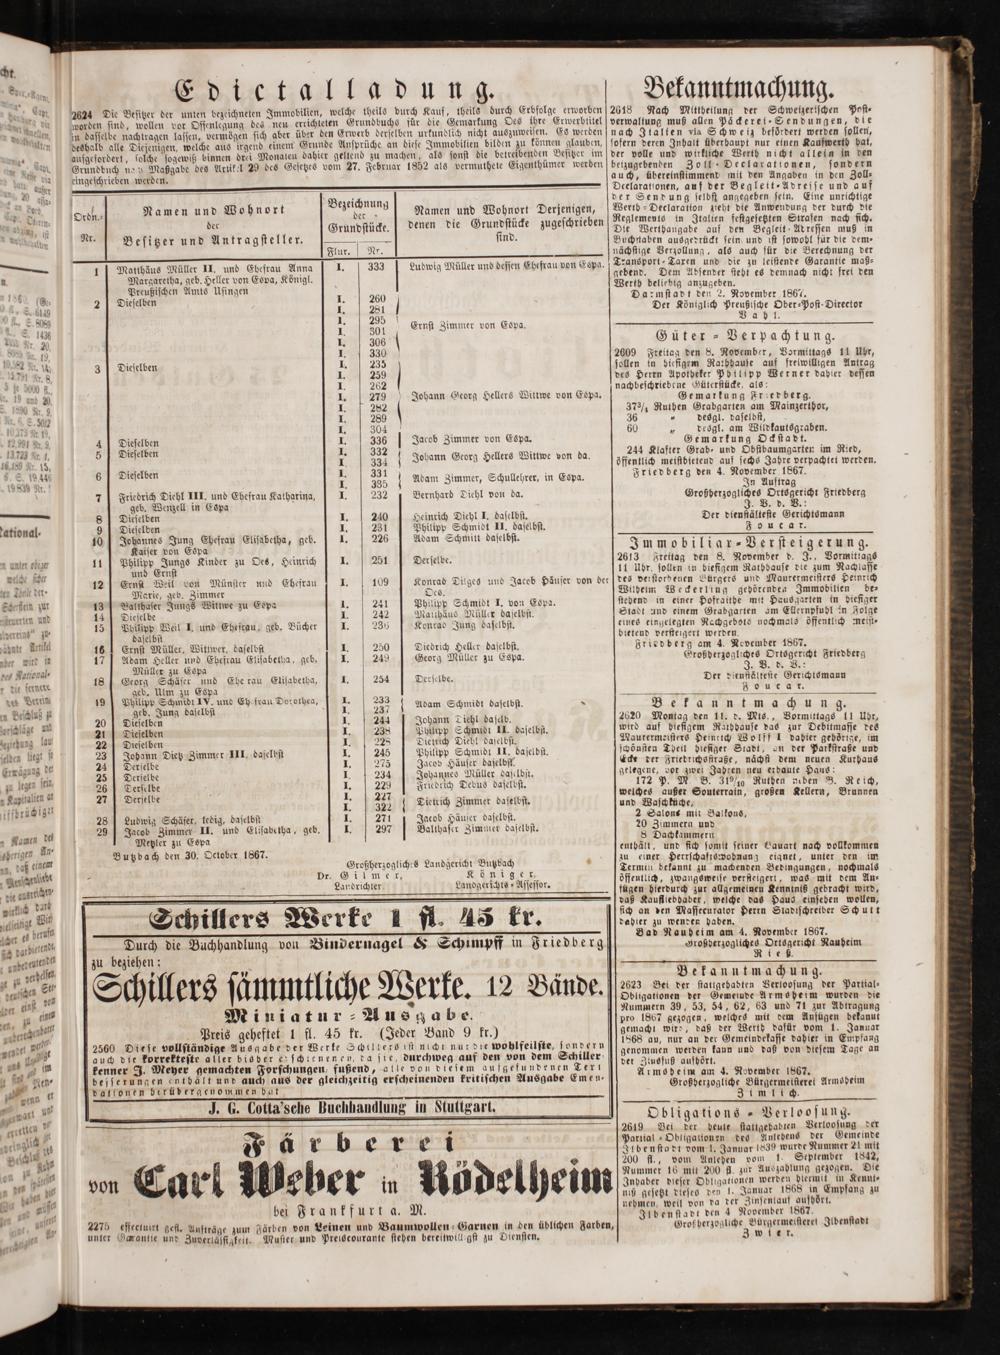 Edictalladung.
2624 Die Besitzer der unten bezeichneten Immobilien, welche theils durch Kauf, theils durch Erbfolge erworben
worden sind, wollen vor Offenlegung des neu errichteten Grundbuchs für die Gemarkung Oes ihre Erwerbtitel
in dasselbe nachtragen lassen, vermögen sich aber über den Erwerb derselben urkundlich nicht auszuweisen. Es werden
deshalb alle Diejenigen, welche aus irgend einem Grunde Ansprüche an diese Immobilien bilden zu können glauben,
aufgefordert, solche sogewiß binnen drei Monaten dahier geltend zu machen, als sonst die betreibenden Besitzer im
Grundbuch nach Maßgabe des Artikel 29 des Gesetzes vom 27. Februar 1852 als vermuthete Eigenthümer werden
eingeschrieben werden.
Ordn.= Nr. | Namen und Wohnort der Besitzer und Antragsteller. | Bezeichnung der Grundstücke. Flur. Nr. | Namen und Wohnort Derjenigen, denen die Grundstücke zugeschrieben sind.
1 Matthäus Müller II. und Ehefrau Anna I. 333 Ludwig Müller und dessen Ehefrau von Espa.
Margaretha, geb. Heller von Espa, Königl.
Preußischen Amts Usingen
2 Dieselben I. 260
I. 281
I. 295
I. 301 Ernst Zimmer von Espa.
I. 306
I. 330
3 Dieselben I. 235
I. 259
I. 262
I. 279 Johann Georg Hellers Wittwe von Espa.
I. 282
I. 289
I. 304
4 Dieselben I. 336 Jacob Zimmer von Espa.
5 Dieselben I. 332 Johann Georg Hellers Wittwe von da.
I. 334
6 Dieselben I. 331 Adam Zimmer, Schullehrer, in Espa.
I. 335
7 Friedrich Diehl III. und Ehefrau Katharina, I. 232 Bernhard Diehl von da.
geb. Wenzell in Espa
8 Dieselben I. 240 Heinrich Diehl I. daselbst.
9 Dieselben I. 231 Philipp Schmidt II. daselbst.
10 Johannes Jung Ehefrau Elisabetha, geb. I. 226 Adam Schmitt daselbst.
Kaiser von Espa
11 Philipp Jungs Kinder zu Oes, Heinrich I. 251 Derselbe.
und Ernst
12 Ernst Weil von Münster und Ehefrau I. 109 Konrad Dilges und Jacob Häuser von der
Marie, geb. Zimmer Oes.
13 Balthaser Jungs Wittwe zu Espa I. 241 Philipp Schmidt I. von Espa.
14 Dieselbe I. 242 Matthäus Müller daselbst.
15 Philipp Weil I. und Ehefrau, geb. Bücher I. 236 Konrad Jung daselbst.
daselbst
16 Ernst Müller, Wittwer, daselbst I. 250 Diedrich Heller daselbst.
17 Adam Heller und Ehefrau Elisabetha, geb. I. 249 Georg Müller zu Espa.
Müller zu Espa
18 Georg Schäfer und Ehefrau Elisabetha, I. 254 Derselbe.
geb. Ulm zu Espa
19 Philipp Schmidt IV. und Ehefrau Dorothea, I. 233 Adam Schmidt daselbst.
geb. Jung daselbst I. 237
20 Dieselben I. 244 Johann Diehl daselb.
21 Dieselben I. 238 Philipp Schmidt II. daselbst.
22 Dieselben I. 228 Dietrich Diehl daselbst.
23 Johann Dietz Zimmer III. daselbst I. 245 Philipp Schmidt II. daselbst.
24 Derselbe I. 275 Jacob Häuser daselbst.
25 Derselbe I. 234 Johannes Müller daselbst.
26 Derselbe I. 229 Friedrich Debus daselbst.
27 Derselbe I. 227 Dietrich Zimmer daselbst.
I. 322
28 Ludwig Schäfer, ledig, daselbst I. 271 Jacob Häuser daselbst.
29 Jacob Zimmer II. und Elisabetha, geb. I. 297 Balthaser Zimmer daselbst.
Metzler zu Espa
Butzbach den 30. October 1867.
Großherzogliches Landgericht Butzbach
Dr. Gilmer, Königer,
Landrichter. Landgerichts-Assessor.
Schillers Werke 1 fl. 45 kr.
Durch die Buchhandlung von Bindernagel & Schimpff in Friedberg
zu beziehen:
Schillers sämmtliche Werke. 12 Bände.
Miniatur-Ausgabe.
Preis geheftet 1 fl. 45 kr. (Jeder Band 9 kr.)
2560 Diese vollständige Ausgabe der Werke Schillers ist nicht nur die wohlfeilste, sondern
auch die korrekteste aller bisher erschienenen, da sie, durchweg auf den von dem Schiller
kenner J. Meyer gemachten Forschungen fußend, alle von diesem aufgefundenen Text
besserungen enthält und auch aus der gleichzeitig erscheinenden kritischen Ausgabe Emen-
dationen herübergenommen hat
J. G. Cotta'sche Buchhandlung in Stuttgart.
Färberei
von Carl Weber in Rödelheim
bei Frankfurt a. M.
2275 effectuirt gefl. Aufträge zum Färben von Leinen und Baumwollen-Garnen in den üblichen Farben,
unter Garantie und Zuverlässigkeit. Muster und Preiscourante stehen bereitwilligst zu Diensten.
Bekanntmachung.
2618 Nach Mittheilung der Schweizerischen Post-
verwaltung muß allen Päckerei-Sendungen, die
nach Italien via Schweiz befördert werden sollen,
sofern deren Inhalt überhaupt nur einen Kaufwerth hat,
der volle und wirkliche Werth nicht allein in den
beizugebenden Zoll-Declarationen, sondern
auch, übereinstimmend mit den Angaben in den Zoll-
Declarationen, auf der Begleit-Adresse und auf
der Sendung selbst angegeben sein. Eine unrichtige
Werth-Declaration zieht die Anwendung der durch die
Reglements in Italien festgesetzten Strafen nach sich.
Die Werthangabe auf den Begleit-Adressen muß in
Buchstaben ausgedrückt sein und ist sowohl für die dem-
nächstige Verzollung, als auch für die Berechnung der
Transport-Taxen und die zu leistende Garantie maß-
gebend. Dem Absender steht es demnach nicht frei den
Werth beliebig anzugeben.
Darmstadt den 2. November 1867.
Der Königlich Preußische Ober-Post-Director
Vahl.
Güter-Verpachtung.
2609 Freitag den 8. November, Vormittags 11 Uhr,
sollen in hiesigem Rathhause auf freiwilligen Antrag
des Herrn Apotheker Philipp Werner dahier dessen
nachbeschriebene Güterstücke, als:
Gemarkung Friedberg.
37 3/4 Ruthen Grabgarten am Mainzerthor,
36 „ desgl. daselbst,
60 „ desgl. am Wildkautsgraben.
Gemarkung Ockstadt.
244 Klafter Grab- und Obstbaumgarten im Ried,
öffentlich meistbietend auf sechs Jahre verpachtet werden.
Friedberg den 4. November 1867.
In Auftrag
Großherzogliches Ortsgericht Friedberg
J. V. d. V.:
Der dienstälteste Gerichtsmann
Foucar.
Immobiliar-Versteigerung.
2613 Freitag den 8. November d. J., Vormittags
11 Uhr, sollen in hiesigem Rathhause die zum Nachlasse
des verstorbenen Bürgers und Maurermeisters Heinrich
Wilhelm Weckerling gehörenden Immobilien be-
stehend in einer Hofraithe mit Hausgarten in hiesiger
Stadt und einem Grabgarten am Ellernpfuhl in Folge
eines eingelegten Nachgebots nochmals öffentlich meist-
bietend versteigert werden.
Friedberg am 4. November 1867.
Großherzogliches Ortsgericht Friedberg
J. V. d. V.:
Der dienstälteste Gerichtsmann
Foucar.
Bekanntmachung.
2620 Montag den 11. d. Mts., Vormittags 11 Uhr,
wird auf hiesigem Rathhause das zur Debitmasse des
Maurermeisters Heinrich Wolff I. dahier gehörige, im
schönsten Theil hiesiger Stadt, an der Parkstraße und
Ecke der Friedrichstraße, nächst dem neuen Kurhaus
gelegene, vor zwei Jahren neu erbaute Haus:
172 P. M B. 31 9/10 Ruthen neben B. Reich,
welches außer Souterrain, großen Kellern, Brunnen
und Waschküche,
2 Salons mit Balkons,
20 Zimmern und
8 Dachkammern
enthält, und sich somit seiner Bauart nach vollkommen
zu einer Herrschaftswohnung eignet, unter den im
Termin bekannt zu machenden Bedingungen, nochmals
öffentlich, zwangsweise versteigert, was mit dem An-
fügen hierdurch zur allgemeinen Kenntniß gebracht wird,
daß Kaufliebhaber, welche das Haus einsehen wollen,
sich an den Massecurator Herrn Stadtschreiber Schutt
dahier zu wenden haben.
Bad Nauheim am 4. November 1867.
Großherzogliches Ortsgericht Nauheim
Rieß.
Bekanntmachung.
2623 Bei der stattgehabten Verloosung der Partial-
Obligationen der Gemeinde Armsheim wurden die
Nummern 39, 53, 54, 62, 63 und 71 zur Abtragung
pro 1867 gezogen, welches mit dem Anfügen bekannt
gemacht wird, daß der Werth dafür vom 1. Januar
1868 an, nur an der Gemeindekasse dahier in Empfang
genommen werden kann und daß von diesem Tage an
der Zinsfuß aufhört.
Armsheim am 4. November 1867.
Großherzogliche Bürgermeisterei Armsheim
Zimlich.
Obligations-Verloosung.
2619 Bei der heute stattgehabten Verloosung der
Partial-Obligationen des Anlehens der Gemeinde
Ilbenstadt vom 1. Januar 1839 wurde Nummer 21 mit
200 fl., vom Anlehen vom 1. September 1842,
Nummer 16 mit 200 fl. zur Auszahlung gezogen. Die
Inhaber dieser Obligationen werden hiermit in Kennt-
niß gesetzt dieses den 1. Januar 1868 in Empfang zu
nehmen, weil von da der Zinsenlauf aufhört.
Ilbenstadt den 4 November 1867.
Großherzogliche Bürgermeisterei Ilbenstadt
Zwier.